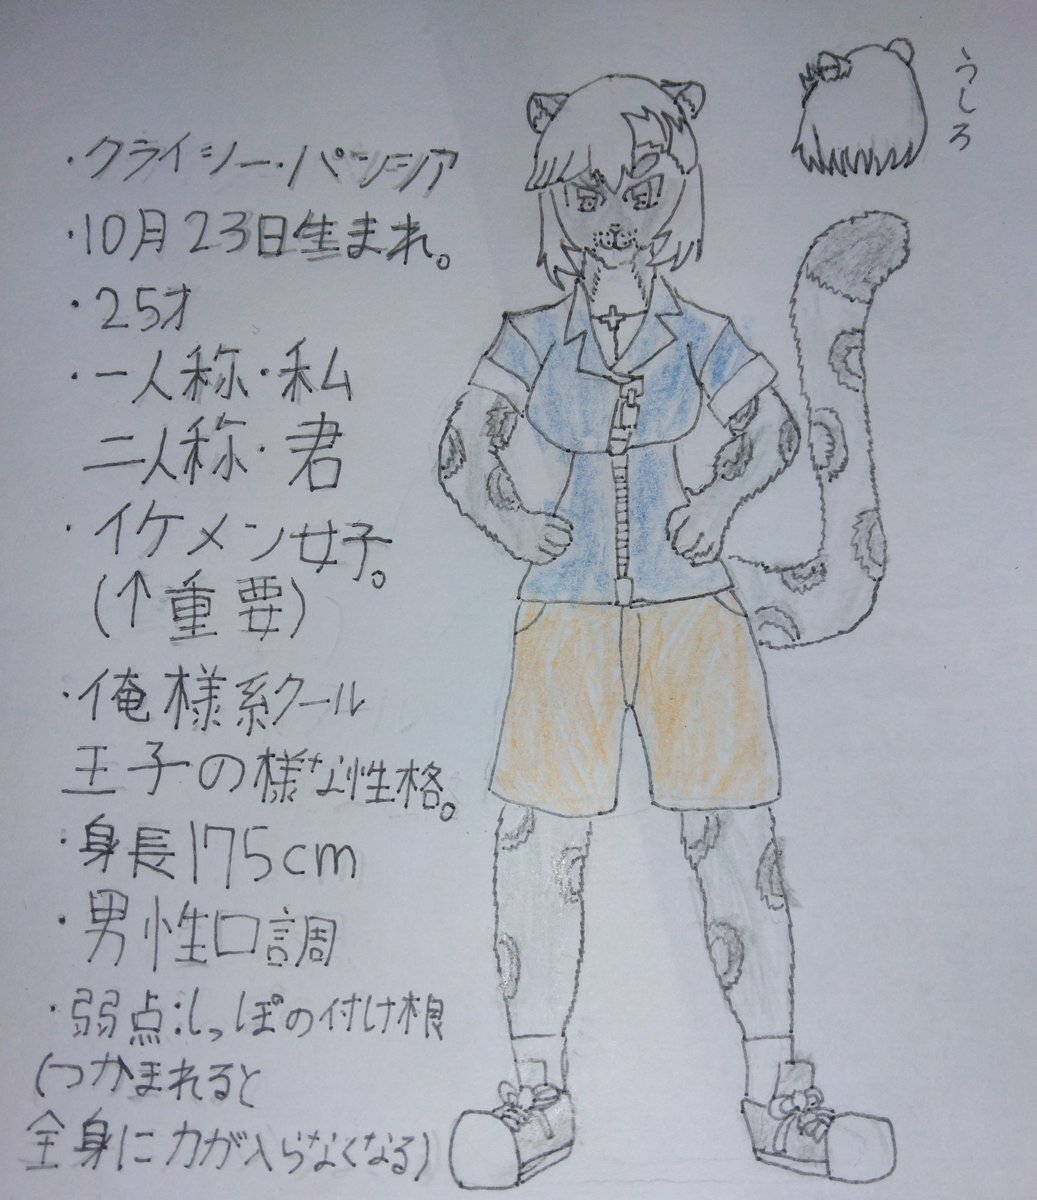 ・クライシー・パンシア
・10月23日生まれ。
・25才
・一人称・私
二人称・君
・イケメン女子。
(↑重要)
・俺様系クール
王子の様な性格。
・身長175cm
・男性口調
・弱点:しっぽの付け根
(つかまれると
全身に力が入らなくなる)
うしろ